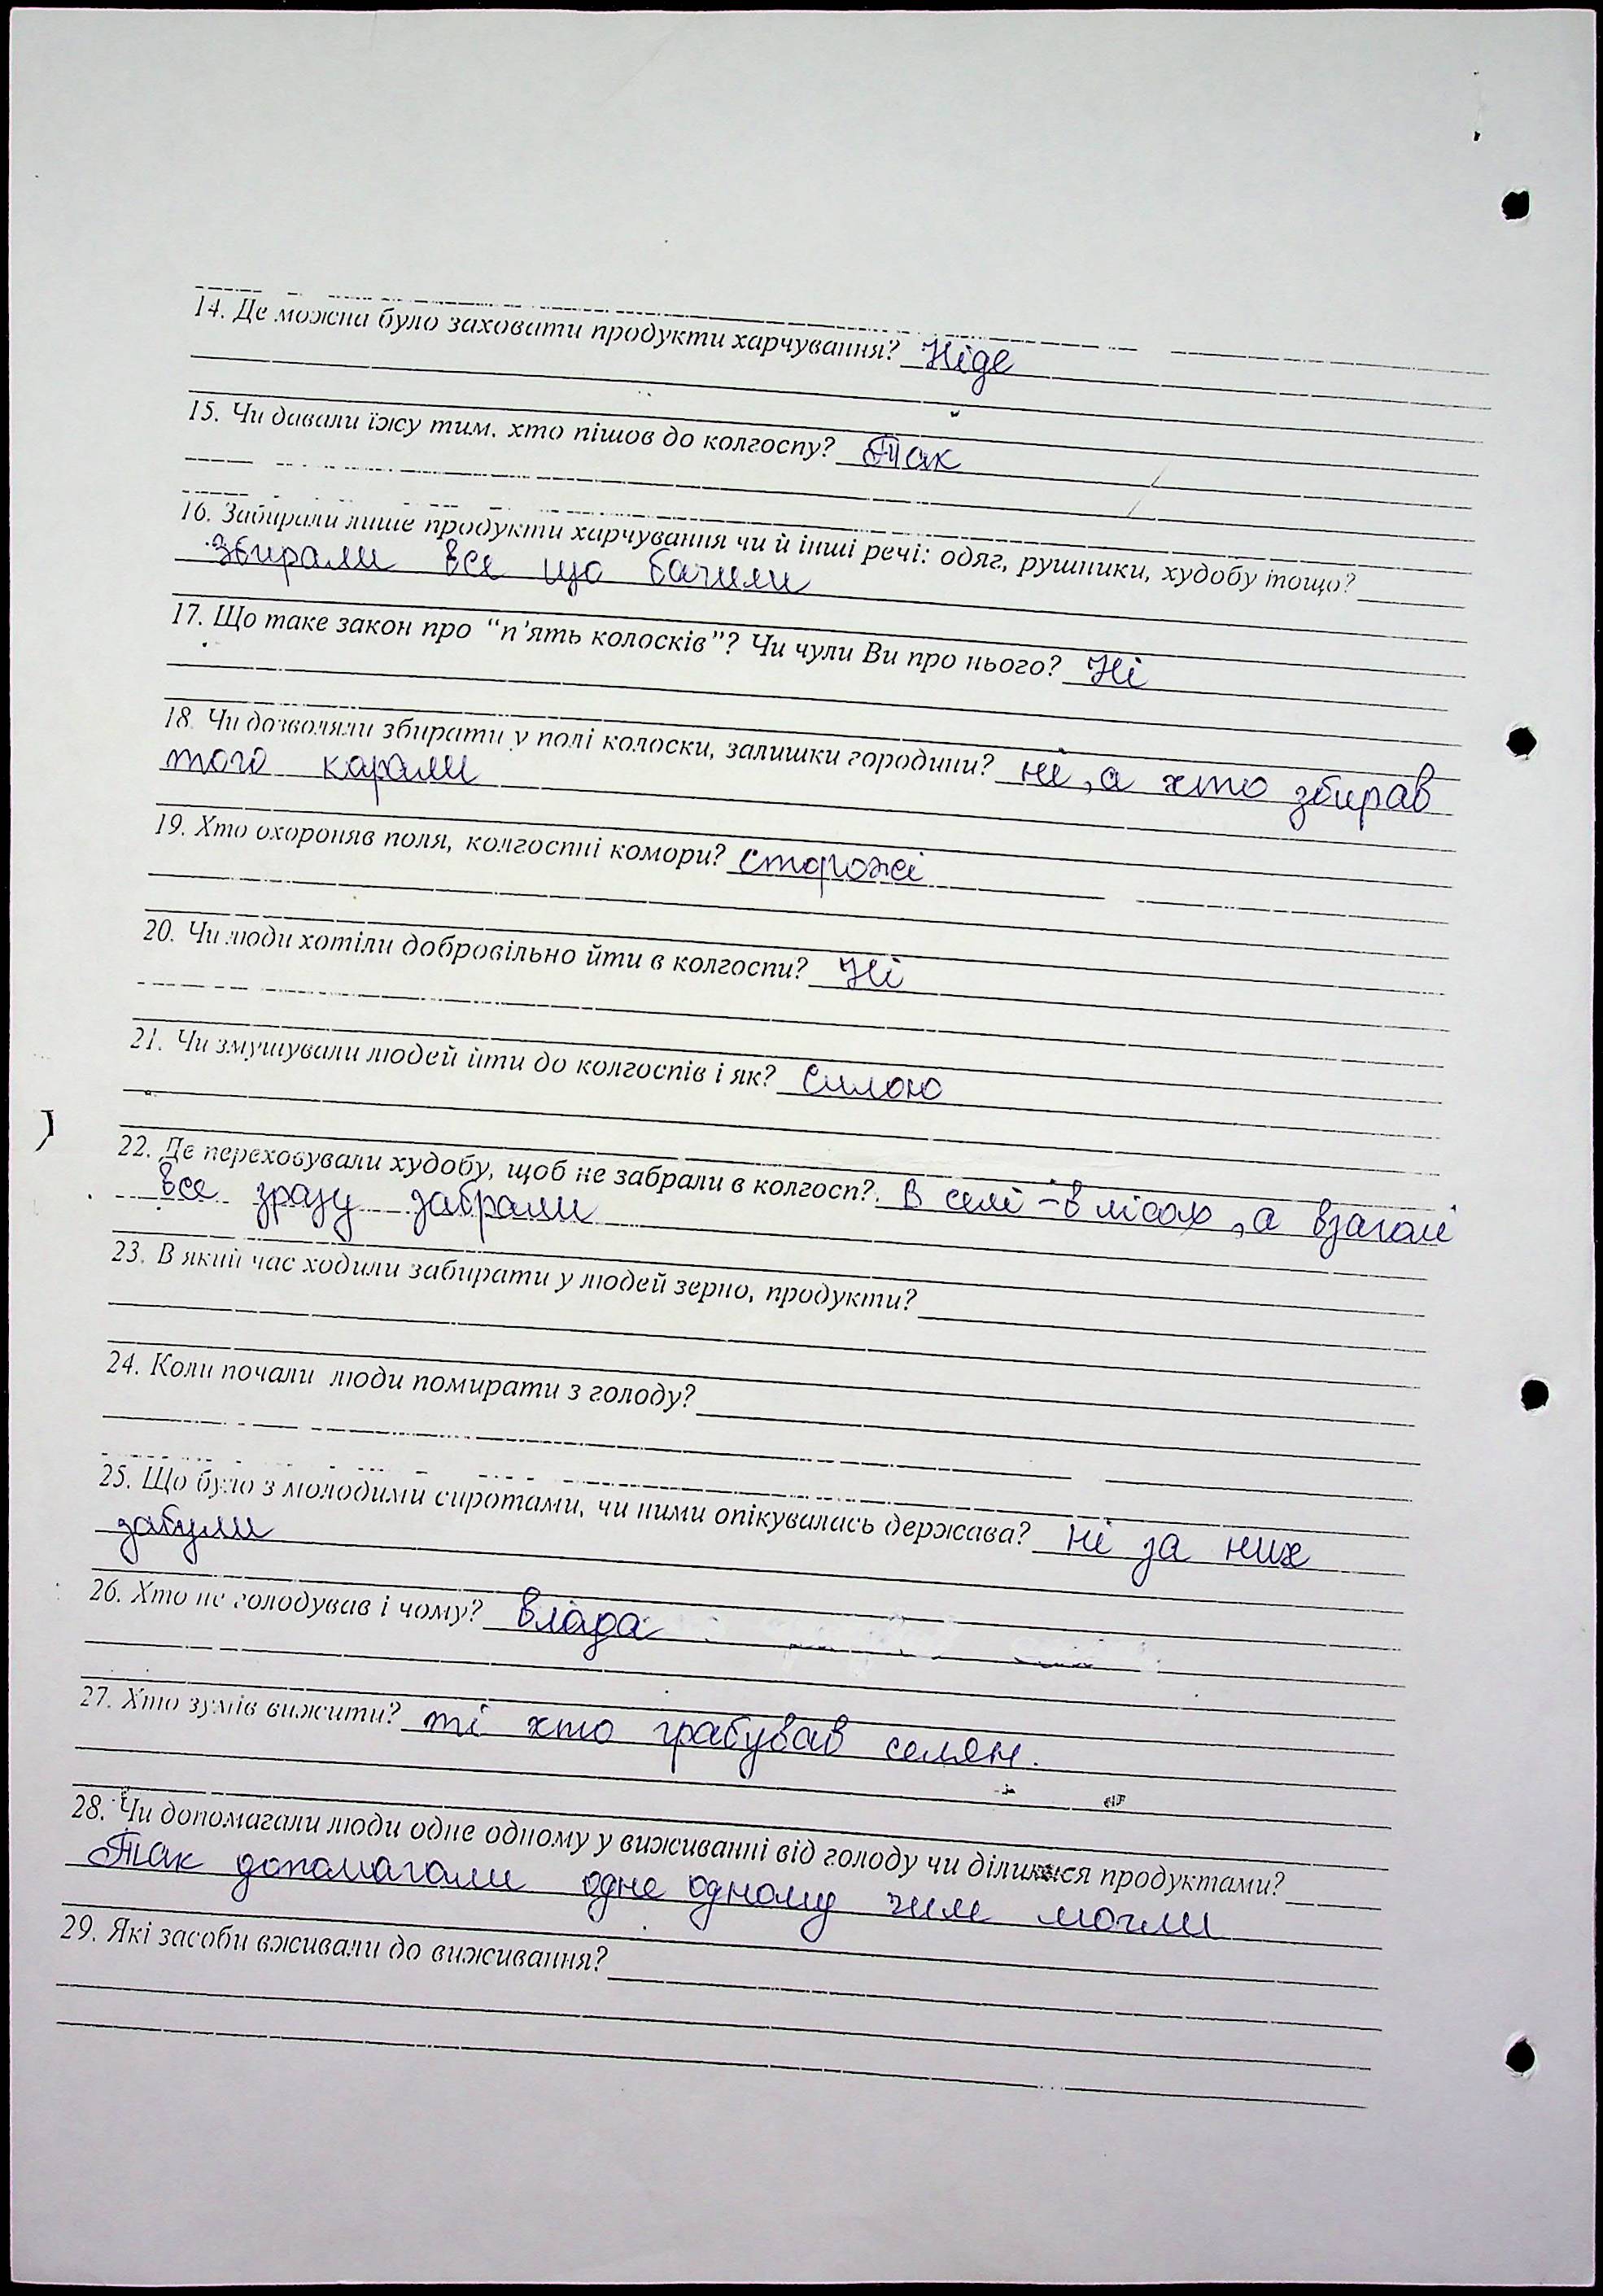 14. Де можна було заховати продукти харчування? Ніде
15. Чи давали їжу тим, хто пішов до колгоспу? Так
16. Забирали лише продукти харчування чи й інші речі: одяг, рушники, худобу тощо?
збирали все що бачили
17. Що таке закон про “п’ять колосків”? Чи чули Ви про нього? Ні
18. Чи дозволяли збирати у полі колоски, залишки городини? ні, а хто збирав
того карали
19. Хто охороняв поля, колгоспні комори? сторожі
20. Чи люди хотіли добровільно йти в колгоспи? Ні
21. Чи змушували людей йти до колгоспів і як? Силою
22. Де переховували худобу, щоб не забрали в колгосп?. в селі - в лісах, а взагалі
все зразу забрали
23. В який час ходили забирати у людей зерно, продукти?
24. Коли почали люди помирати з голоду?
25. Що було з молодими сиротами, чи ними опікувалась держава? ні за них
забули
26. Хто не голодував і чому? влада
27. Хто зумів вижити? ті хто грабував селян.
28. Чи допомагали люди одне одному у виживанні від голоду чи ділилися продуктами?
Так допомагали одне одному чим могли
29. Які засоби вживали до виживання?